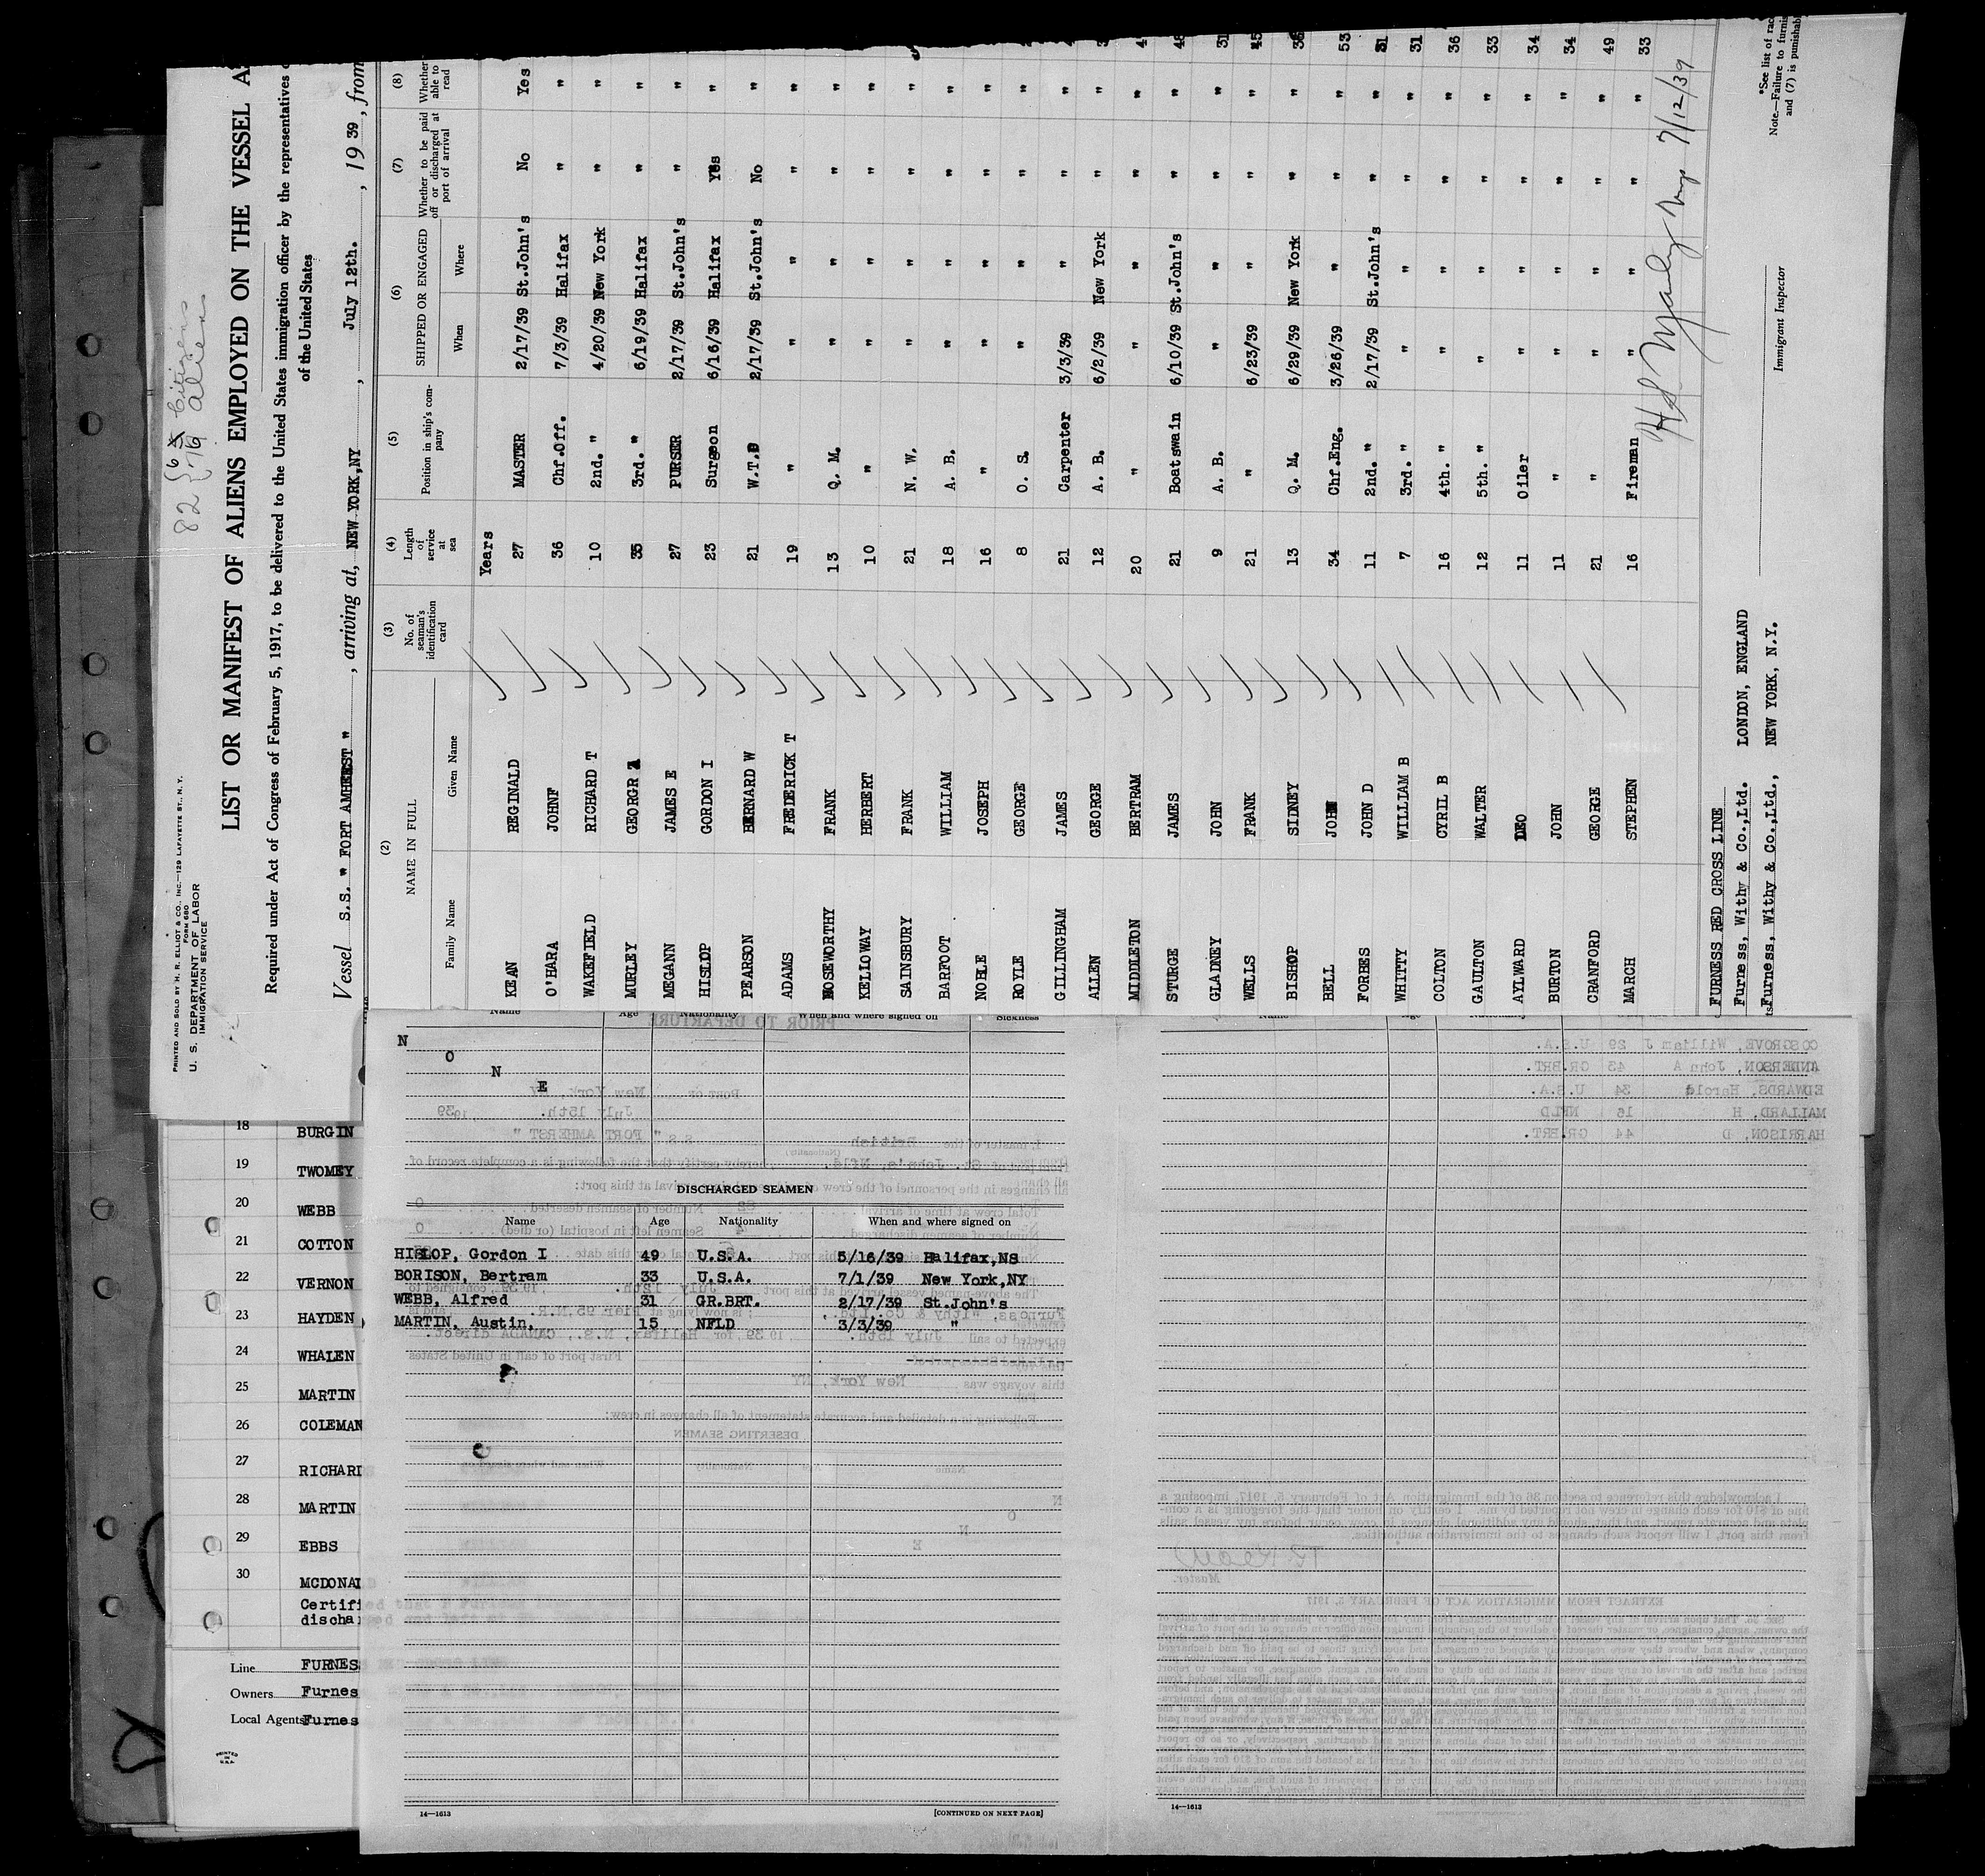 PRINTED AND SOLD BY H. R. ELLIOT & CO., INC.—129 LAFAYETTE ST., N.Y.
FORM 680
U. S. DEPARTMENT OF LABOR
IMMIGRATION SERVICE
82 { 6 Citizens
76 aliens
LIST OR MANIFEST OF ALIENS EMPLOYED ON THE VESSEL
Required under Act of Congress of February 5, 1917, to be delivered to the United States immigration officer by the representatives
of the United States
Vessel S.S. " FORT AMHERST ", arriving at, NEW YORK, NY, July 12th., 1939, from
(2) (3) (4) (5) (6) (7) (8)
NAME IN FULL No. of seaman's identification card Length of service at sea Position in ship's company SHIPPED OR ENGAGED Whether to be paid off or discharged at port of arrival Whether able to read
Family Name Given Name When Where
Years
KEAN REGINALD 27 MASTER 2/17/39 St.John's No Yes
O'HARA JOHNF 36 Chf.Off. 7/3/39 Halifax " "
WAKEFIELD RICHARD T 10 2nd. " 4/20/39 New York " "
MURLEY GEORGR 35 3rd. " 6/19/39 Halifax " "
MEGANN JAMES E 27 PURSER 2/17/39 St.John's " "
HISLOP GORDON I 23 Surgeon 6/16/39 Halifax Yes "
PEARSON BERNARD W 21 W.T.O 2/17/39 St.John's No "
ADAMS FREDERICK T 19 " " " " "
NOSEWORTHY FRANK 13 Q. M. " " " "
KELLOWAY HERBERT 10 " " " " "
SAINSBURY FRANK 21 N. W. " " " "
BARFOOT WILLIAM 18 A. B. " " " "
NOBLE JOSEPH 16 " " " " "
ROYLE GEORGE 8 O. S. " " " "
GILLINGHAM JAMES 21 Carpenter 3/3/39 " " "
ALLEN GEORGE 12 A. B. 6/2/39 New York " "
MIDDLETON BERTRAM 20 " " " " "
STURGE JAMES 21 Boatswain 6/10/39 St.John's " " 48
GLADNEY JOHN 9 A. B. " " " " 31
WELLS FRANK 21 " 6/23/39 " " " 45
BISHOP SIDNEY 13 Q. M. 6/29/39 New York " " 36
BELL JOHN 34 Chf.Eng. 3/26/39 " " " 53
FORBES JOHN D 11 2nd. " 2/17/39 St.John's " " 31
WHITTY WILLIAM B 7 3rd. " " " " " 31
COLTON CYRIL B 16 4th. " " " " " 36
GAULTON WALTER 12 5th. " " " " " 33
AYLWARD LEO 11 Oiler " " " " 34
BURTON JOHN 11 " " " " " 34
CRANFORD GEORGE 21 " " " " " 49
MARCH STEPHEN 16 Fireman " " " " 33
7/12/39
FURNESS RED CROSS LINE
Furness, Withy & Co.,Ltd. LONDON, ENGLAND
Furness, Withy & Co.,Ltd., NEW YORK, N.Y.
Immigrant Inspector
*See list of
Note.—Failure to
and (7) is
Name Age Nationality When and where signed on Sickness
N
O
N
E
DISCHARGED SEAMEN
Name Age Nationality When and where signed on
HISLOP, Gordon I 49 U.S.A. 5/16/39 Halifax,NS
BORISON, Bertram 33 U.S.A. 7/1/39 New York,NY
WEBB, Alfred 31 GR.BRT. 2/17/39 St.John's
MARTIN, Austin, 15 NFLD 3/3/39 "
14—1613 [CONTINUED ON NEXT PAGE]
14—1613
18 BURGIN
19 TWOMEY
20 WEBB
21 COTTON
22 VERNON
23 HAYDEN
24 WHALEN
25 MARTIN
26 COLEMAN
27 RICHARD
28 MARTIN
29 EBBS
30 MCDONAL
Certifi
discha
Line FURNES
Owners Furnes
Local Agents Furnes
PRINTED
IN
U.S.A.